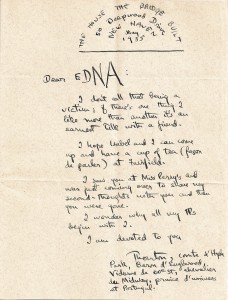 THE HOUSE THE BRIDGE BUILT
50 Deepwood Drive
NEW HAVEN
May
1955
Dear EDNA:
I don't call that being a
victim; if there's one thing I
like more than another it's an
earnest talk with a friend.
I hope Isabel and I can come
up and have a cup of tea (façon
de parler) at Fairfield.
I saw you at Miss Perry's and
was just coming over to share my
second-thoughts with you and then
you were gone.
I wonder why all my ¶s
begin with I.
I am devoted to you
Thornton, comte d'
Park, Baron d'
Vidame de 50th St, chevalier
du Midway, prince d'
et Portugal.